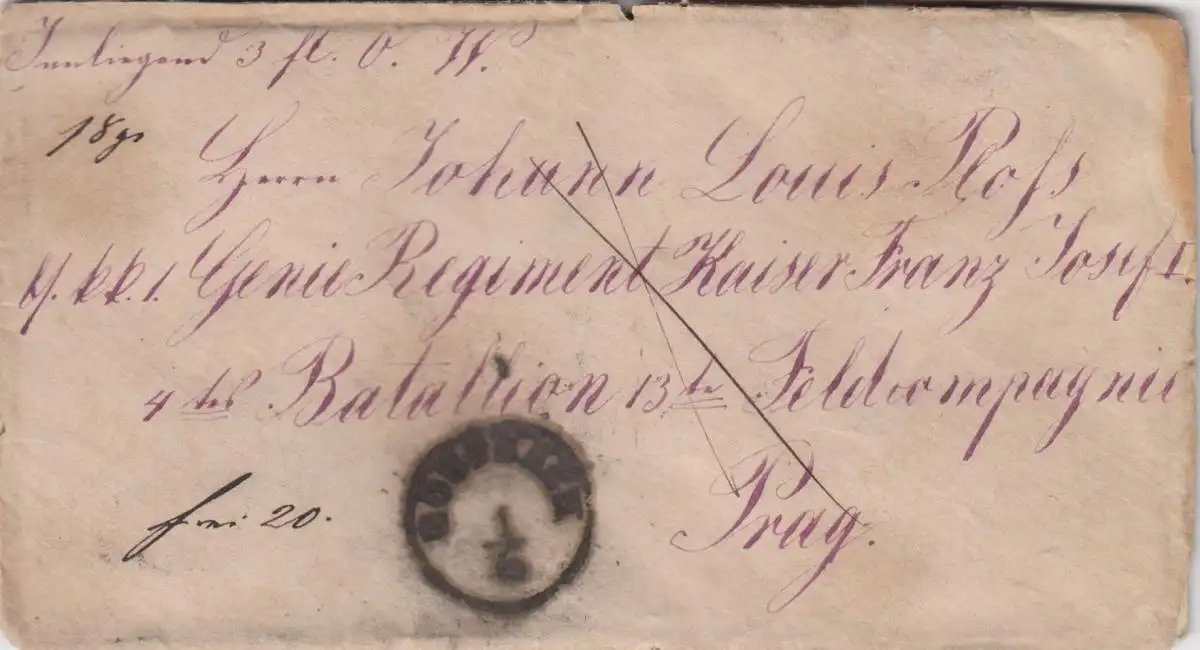 Innliegend 3 fl. O. W.
18 gr
Herrn Johann Louis Ploss
k. k. 1. Genie Regiment Kaiser Franz Josef I.
4tes Batallion 13te Feldcompagnie
frei 20.
1/6
Prag.